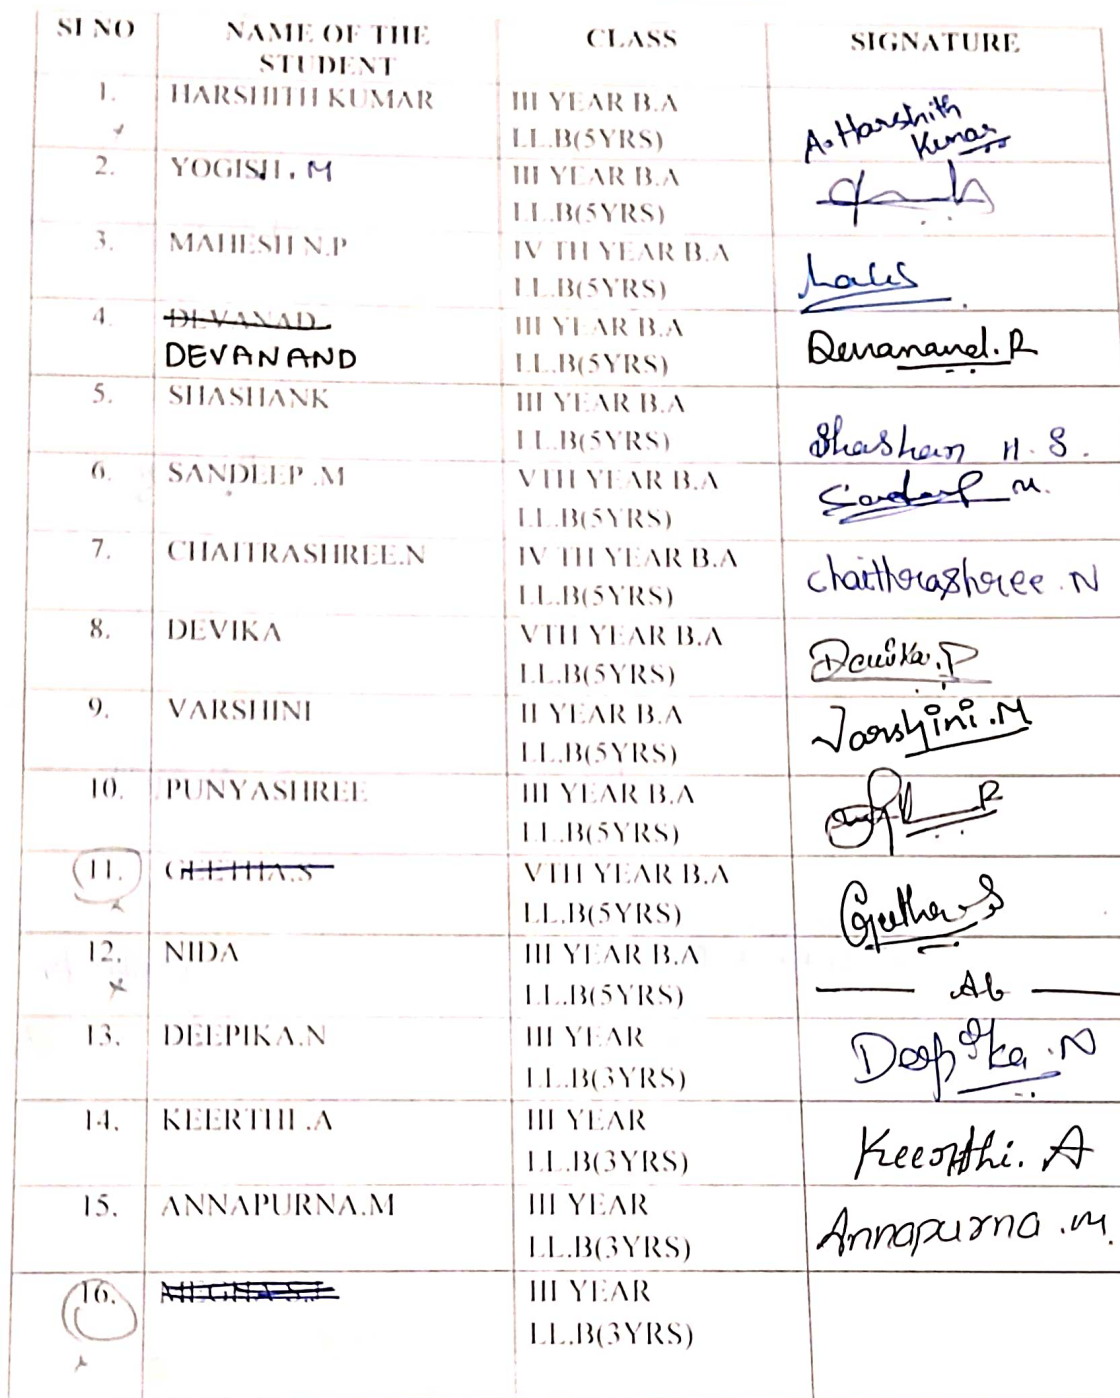 SI NO NAME OF THE CLASS SIGNATURE
STUDENT
1. HARSHITH KUMAR III YEAR B.A
LL.B(5YRS) A. Harshith
Kumar
2. YOGISH . M III YEAR B.A
LL.B(5YRS)
3. MAHESH N.P IV TH YEAR B.A
LL.B(5YRS)
4. DEVANAD III YEAR B.A
DEVANAND LL.B(5YRS) Devanand. R
5. SHASHANK III YEAR B.A
LL.B(5YRS) Shashan H. S.
6. SANDEEP .M VTH YEAR B.A
LL.B(5YRS) M.
7. CHAITRASHREE.N IV TH YEAR B.A
LL.B(5YRS) Chaithrashree . N
8. DEVIKA VTH YEAR B.A
LL.B(5YRS) Devika. P
9. VARSHINI II YEAR B.A
LL.B(5YRS) Varshini . M
10. PUNYASHREE III YEAR B.A
LL.B(5YRS) R
11. GEETHA.S VTH YEAR B.A
LL.B(5YRS) Geetha S
12. NIDA III YEAR B.A
LL.B(5YRS) Ab
13. DEEPIKA.N III YEAR
LL.B(3YRS) Deepika . N
14. KEERTHI .A III YEAR
LL.B(3YRS) Keerthi. A
15. ANNAPURNA.M III YEAR
LL.B(3YRS) Annapurna . M.
16. III YEAR
LL.B(3YRS)